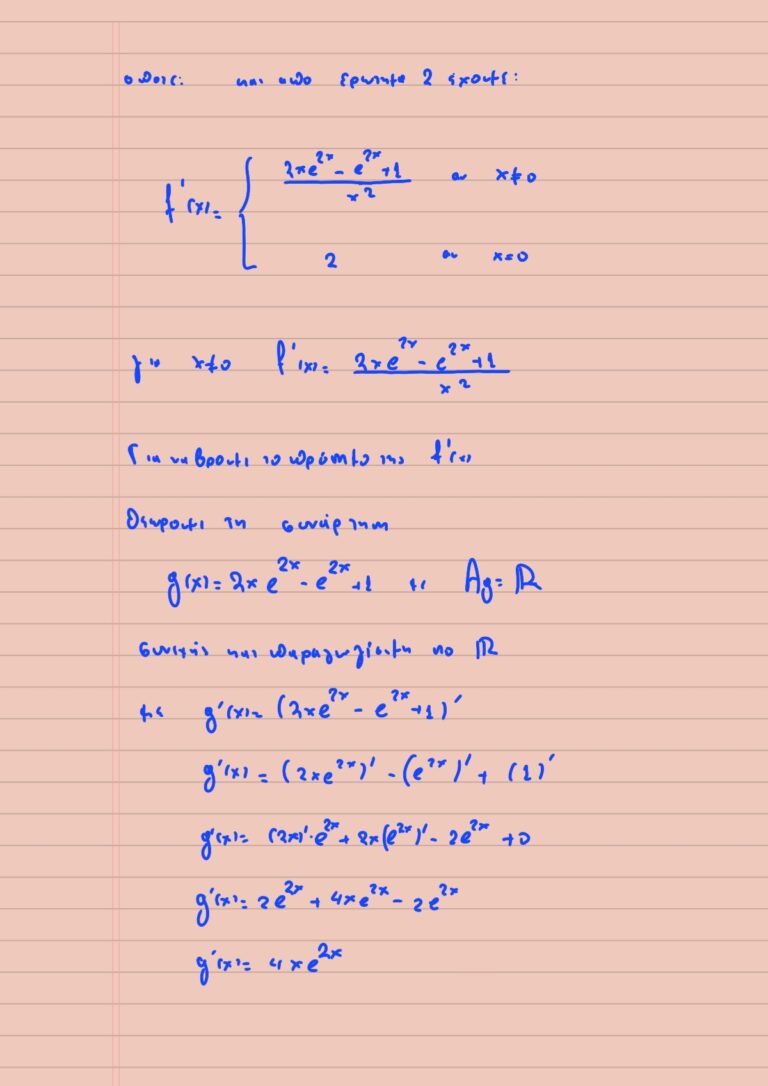 οπότε: και από ερώτημα 2 έχουμε:
f'(x)= { (2xe^{2x} - e^{2x} + 1) / x^2 αν x≠0
2 αν x=0
για x≠0 f'(x)= (2xe^{2x} - e^{2x} + 1) / x^2
Για να βρούμε το πρόσημο της f'(x)
Θεωρούμε τη συνάρτηση
g(x)=2xe^{2x} - e^{2x} +1 με Ag=ℝ
συνεχής και παραγωγίσιμη στο ℝ
με g'(x)= (2xe^{2x} - e^{2x} +1)'
g'(x) = (2xe^{2x})' - (e^{2x})' + (1)'
g'(x)= (2x)'·e^{2x} + 2x(e^{2x})' - 2e^{2x} +0
g'(x)= 2e^{2x} + 4xe^{2x} - 2e^{2x}
g'(x)= 4xe^{2x}